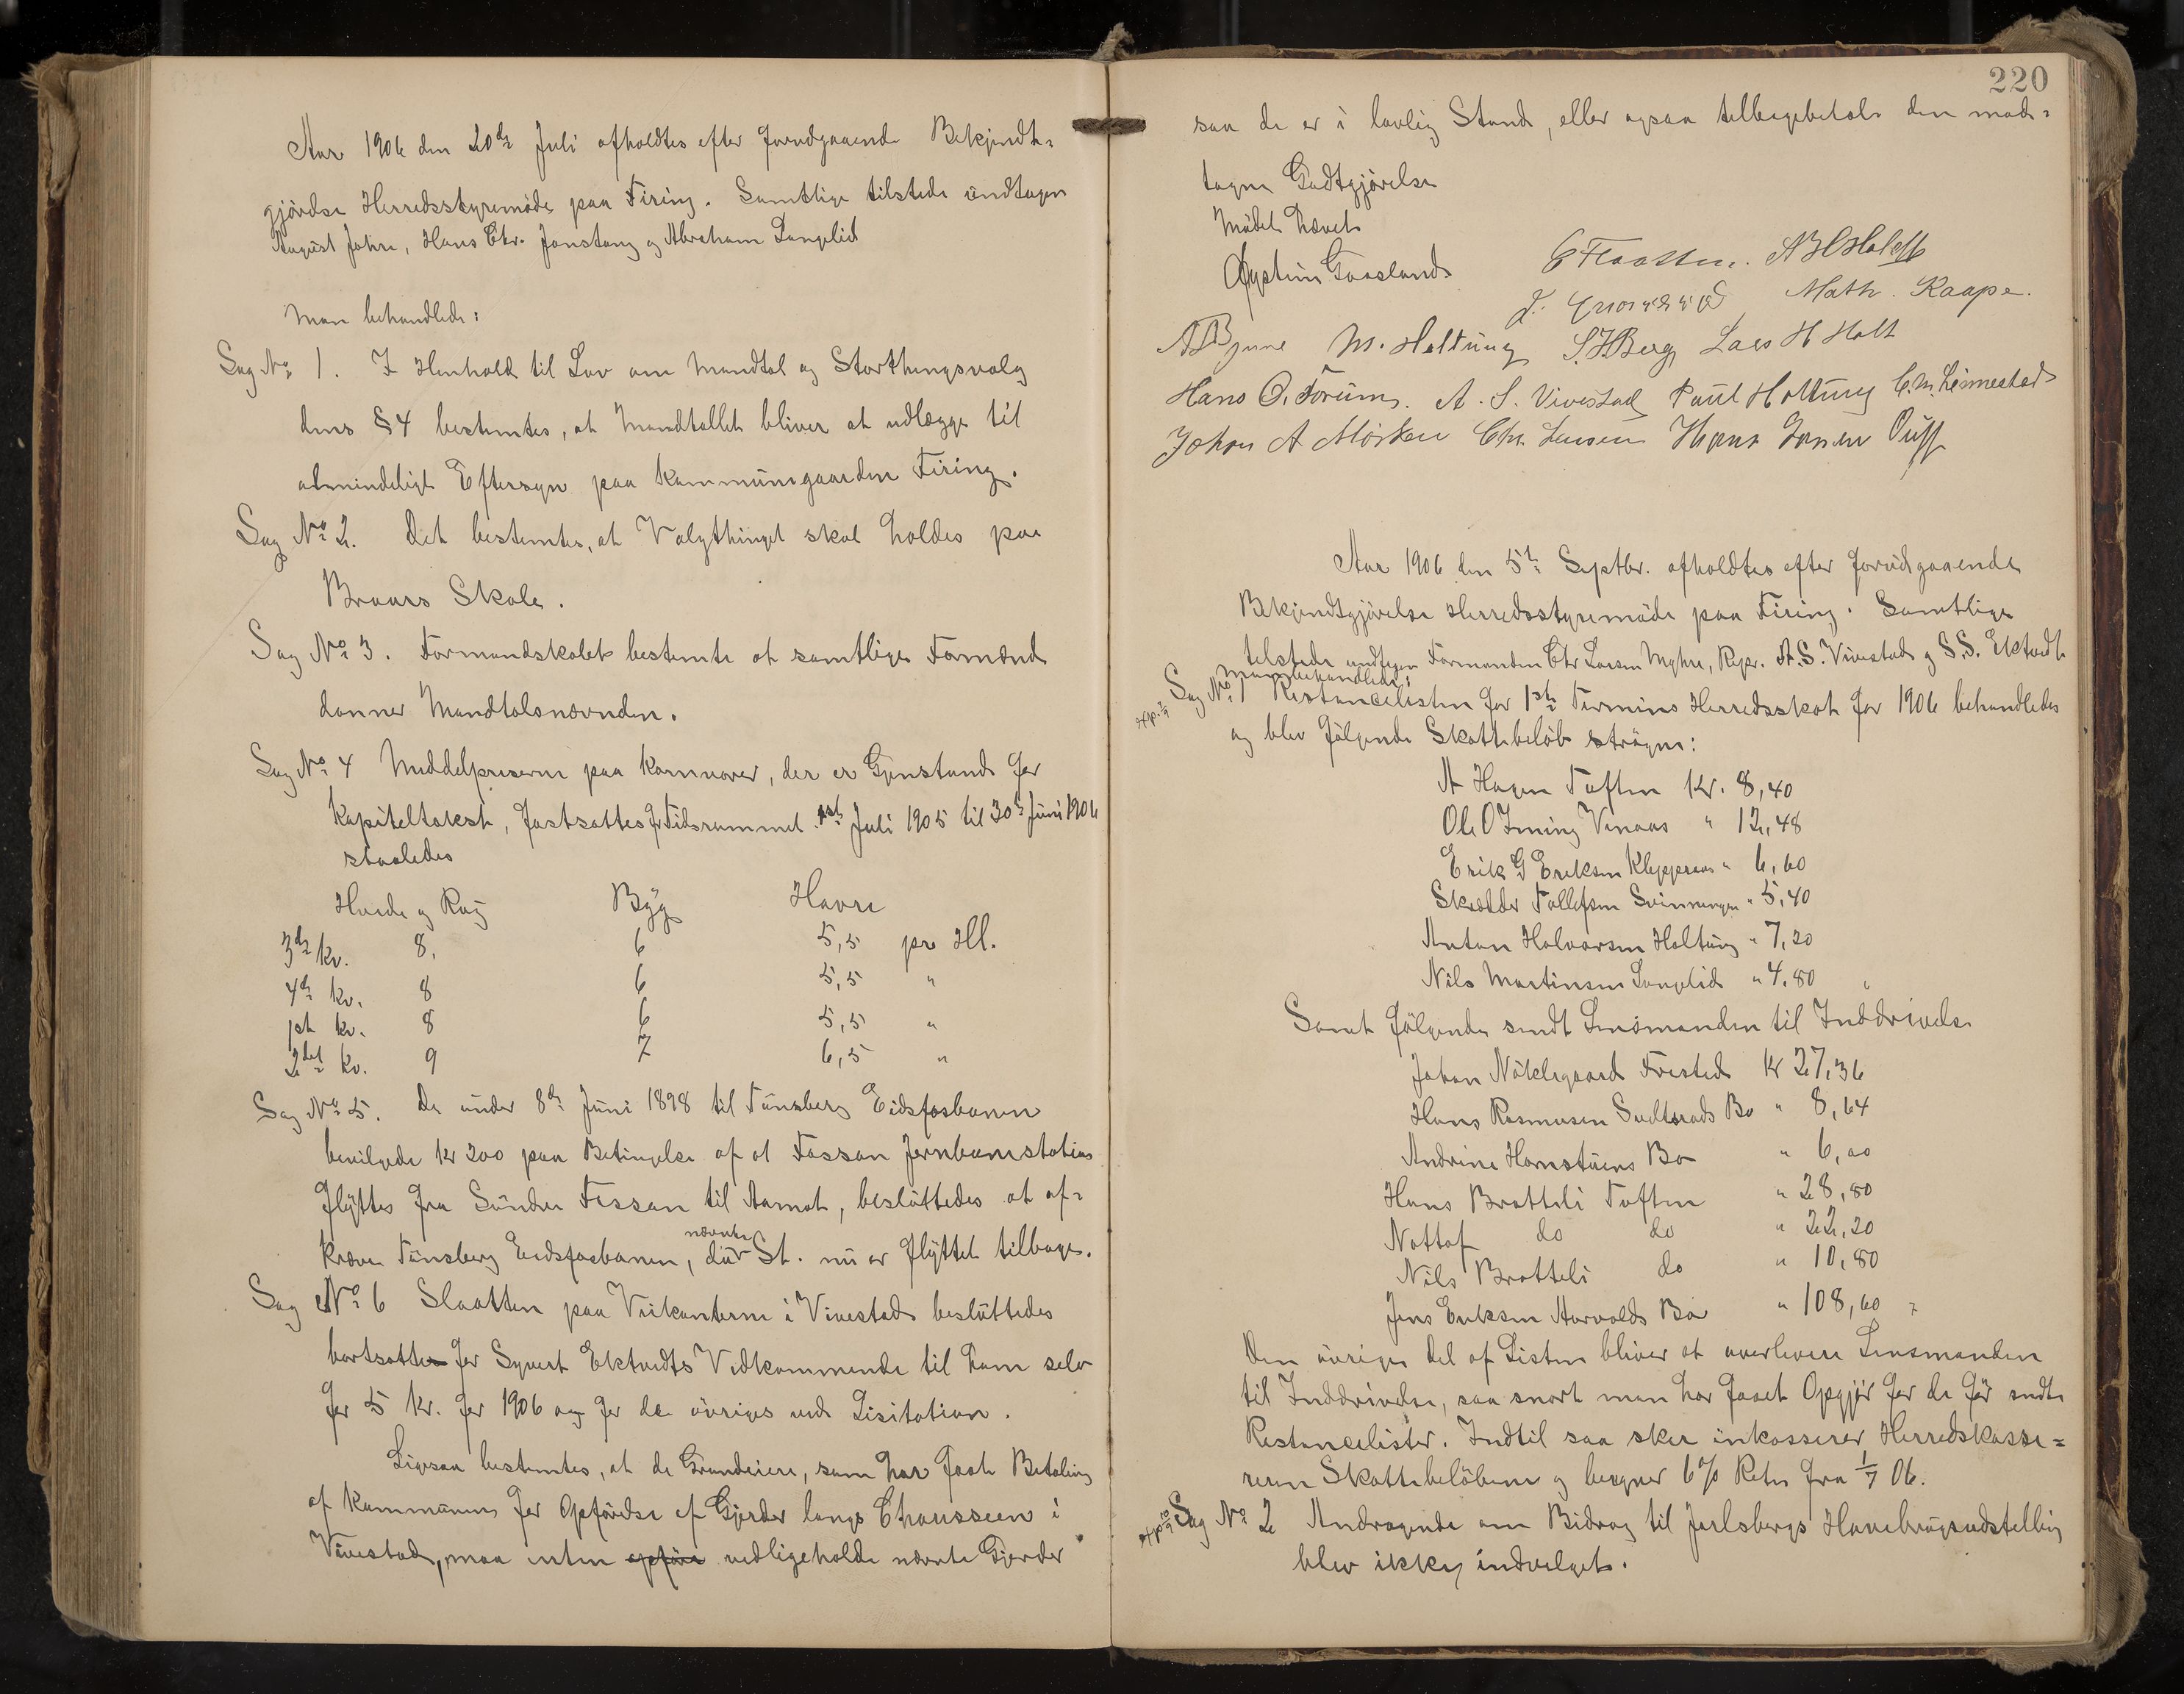 Aar 1906 den 20de Juli afholdtes efter forudgaaende Bekjendt-
gjörelse Herredsstyremöde paa Firing. Samtlige tilstede undtagen
August Jahre, Hans Chr. Jonstang og Abraham Langelid
Man behandlede:
Sag No 1. I Henhold til Lov om Mandtal og Storthingsvalg
dens § 4 bestemtes, at Mandtallet bliver at udlægge til
almindeligt Eftersyn paa Kommunegaarden Firing.
Sag No 2. Det bestemtes, at Valgthinget skal holdes paa
Braars Skole.
Sag No 3. Formandskabet bestemte at samtlige Formænd
danner Mandtalsnævnden.
Sag No 4 Middelpriserne paa Kornvarer, der er Gjenstand for
Kapiteltakst, fastsattes for Tidsrummet 1ste Juli 1905 til 30te Juni 1906
saaledes
Hvede og Rug Byg Havre
3die kv. 8, 6 5,5 pr Hl.
4de kv. 8 6 5,5 "
1ste kv. 8 6 5,5 "
2det kv. 9 7 6,5 "
Sag No 5. De under 8de Juni 1898 til Tünsberg Eidsfosbanen
bevilgede kr 200 paa Betingelse af at Fossan Jernbanestation
flyttes fra Söndre Fossan til Aamot, besluttedes at af-
kræve Tünsberg Eidsfosbanen, da nævnte St. nu er flyttet tilbage.
Sag No 6 Slaatten paa Veikanterne i Vivestad besluttedes
bortsatte for Syvert Ektvedts Vedkommende til ham selv
for 5 kr. for 1906 og for de övriges ved Lisitation.
Ligesaa bestemtes, at de Grundeiere, som har faaet Betaling
af Kommunen for Opförelse af Gjerder langs Chausseen i
Vivestad, maa enten opföre vedligeholde nævnte Gjerder
220
saa de er i lovlig Stand, eller ogsaa tilbagebetale den mod-
tagne Godtgjörelse
Mödet hævet
Öystein Gaasland C Flaatten. A H Holt
Math. Kaape.
A B Myhre M. Holtung S. H Berg Lars H Holt
Hans O. Forum. A. S. Vivestad Paul Holtung C. M. Linnestad
Johan A Mörken Chr. Larsen Hans Jensen
Aar 1906 den 5te Septbr. afholdtes efter forudgaaende
Bekjendtgjörelse Herredsstyremöde paa Firing. Samtlige
tilstede undtagen Formanden Chr Larsen Myhre, Repr. A. S. Vivestad og S. S. Ektvedt
Man behandlede:
Sag No 1 Restancelisten for 1ste Termins Herredsskat for 1906 behandledes
og blev fölgende Skattebelöb strögne:
A Hagen Toften Kr. 8,40
Ole O Vinaas " 12,48
Erik G Eriksen Kleppraas " 6,60
Skrædder Tollefsen Svinnungen " 5,40
Anton Halvorsen Holtung " 7,20
Nils Martinsen Langelid " 4.80
Samt fölgende sendt Lensmanden til Inddrivelse
Johan Nöklegaard Frested Kr 27,36
Hans Rasmusen Sudtorads Bo " 8,64
Andrine Hornstuens Bo " 6,00
Hans Bratteli Toften " 28,80
Nottof do do " 22,20
Nils Bratteli do " 10,80
Jens Eriksen Aarvolds Bo " 108,60
Den övrige Del af Listen bliver at overlevere Lensmanden
til Inddrivelse, saa snart man har faaet Opgjör for de för sendte
Restancelister. Indtil saa sker inkasserer Herredskasse-
reren Skattebelöbene og beregner 6% Rente fra 1/7 06.
Sag No 2 Andragende om Bidrag til Jarlsbergs Havebrugsudstilling
blev ikke indvilget.